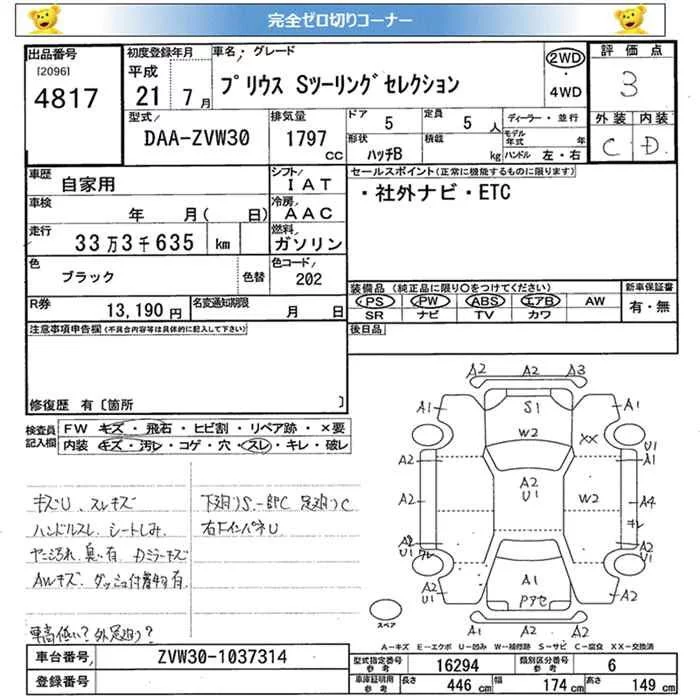 完全ゼロ切りコーナー
出品番号
[2096]
4817
初度登録年月
平成
21 7月
車名・グレード
プリウス Sツーリングセレクション
2WD
・
4WD
評価点
3
外装 内装
C D
型式
DAA-ZVW30
排気量
1797
cc
ドア
5
定員
5 人
形状
ハッチB
積載
kg
ディーラー・並行
モデル年式 年
ハンドル 左・右
車歴
自家用
シフト
IAT
車検
年 月( 日)
冷房
AAC
走行
33万3千635 km
燃料
ガソリン
色
ブラック
色替
色コード
202
R券
13,190円
名変通知期限
月 日
セールスポイント(正常に機能するものに限ります)
・社外ナビ・ETC
装備品 (純正品に限り○をつけてください)
PS PW ABS エアB AW
SR ナビ TV カワ
新車保証書
有・無
後日品
注意事項申告欄(不具合内容等は具体的に記入して下さい)
修復歴 有〔箇所 〕
検査員記入欄
FW キズ・飛石・ヒビ割・リペア跡・×要
内装 キズ・汚レ・コゲ・穴・スレ・キレ・破レ
キズU スレキズ
ハンドルスレ、シートしみ、
ヤニ汚れ 臭い有 Dミラーキズ
AWキズ ダッシュ付着物有
車高低い? 外足廻り?
下廻りS一部C 足廻りC
右FインパネU
A2 A2 A3
A1 S1 A1
W2 XX U1
A2 A1
A2 A2 U1 W2 A4
キレ
A2 U1 ワレ A2 U1
A2 U1 A1 A1
Pアセ
A2 A2 A2
スペア
A-キズ E-エクボ U-凹み W-補修跡 S-サビ C-腐食 XX-交換済
車台番号
ZVW30-1037314
登録番号
型式指定番号
参考
16294
類別区分番号
参考
6
車庫証明用
参考
長さ 446 cm
幅 174 cm
高さ 149 cm